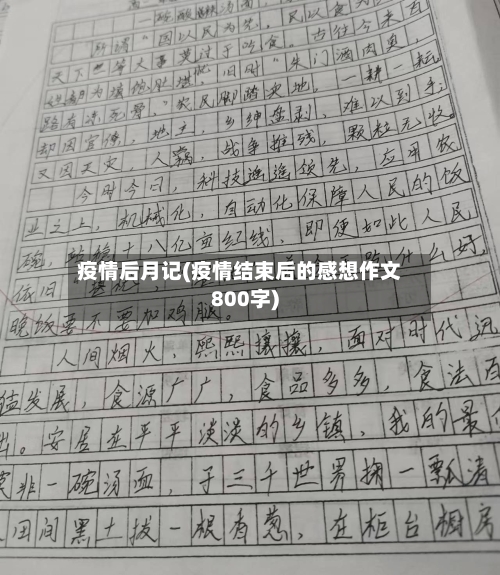 一碗酸辣汤面
所谓"国以民为先，民以食为
天下世等大事莫过于吃食。古往今来百
姓都为填饱肚
旧时"朱门酒肉臭，
路有冻死骨。"农民脚踏实地，一耕一耘，
却因官僚，地主，乡绅盘剥，难以到手；
又因天灾，人祸，战争摧残，颗粒无收。
今时今日，科技遥遥领先，应用农
业之上，机械化，自动化保障人民的饭
碗，
十八亿亩红线，即便如此人民
依旧
什么好，
疫情后月记(疫情结束后的感想作文
800字)
晚饭要不要加鸡腿。
人间烟火，熙熙攘攘，面对时代迅
猛发展，食源广广，食品多多，食法百
出。安居在平平淡淡的乡镇，我的最
莫非一碗汤面，于三千世界掬一瓢清
田间黑土拔一根香葱，在柜台橱房